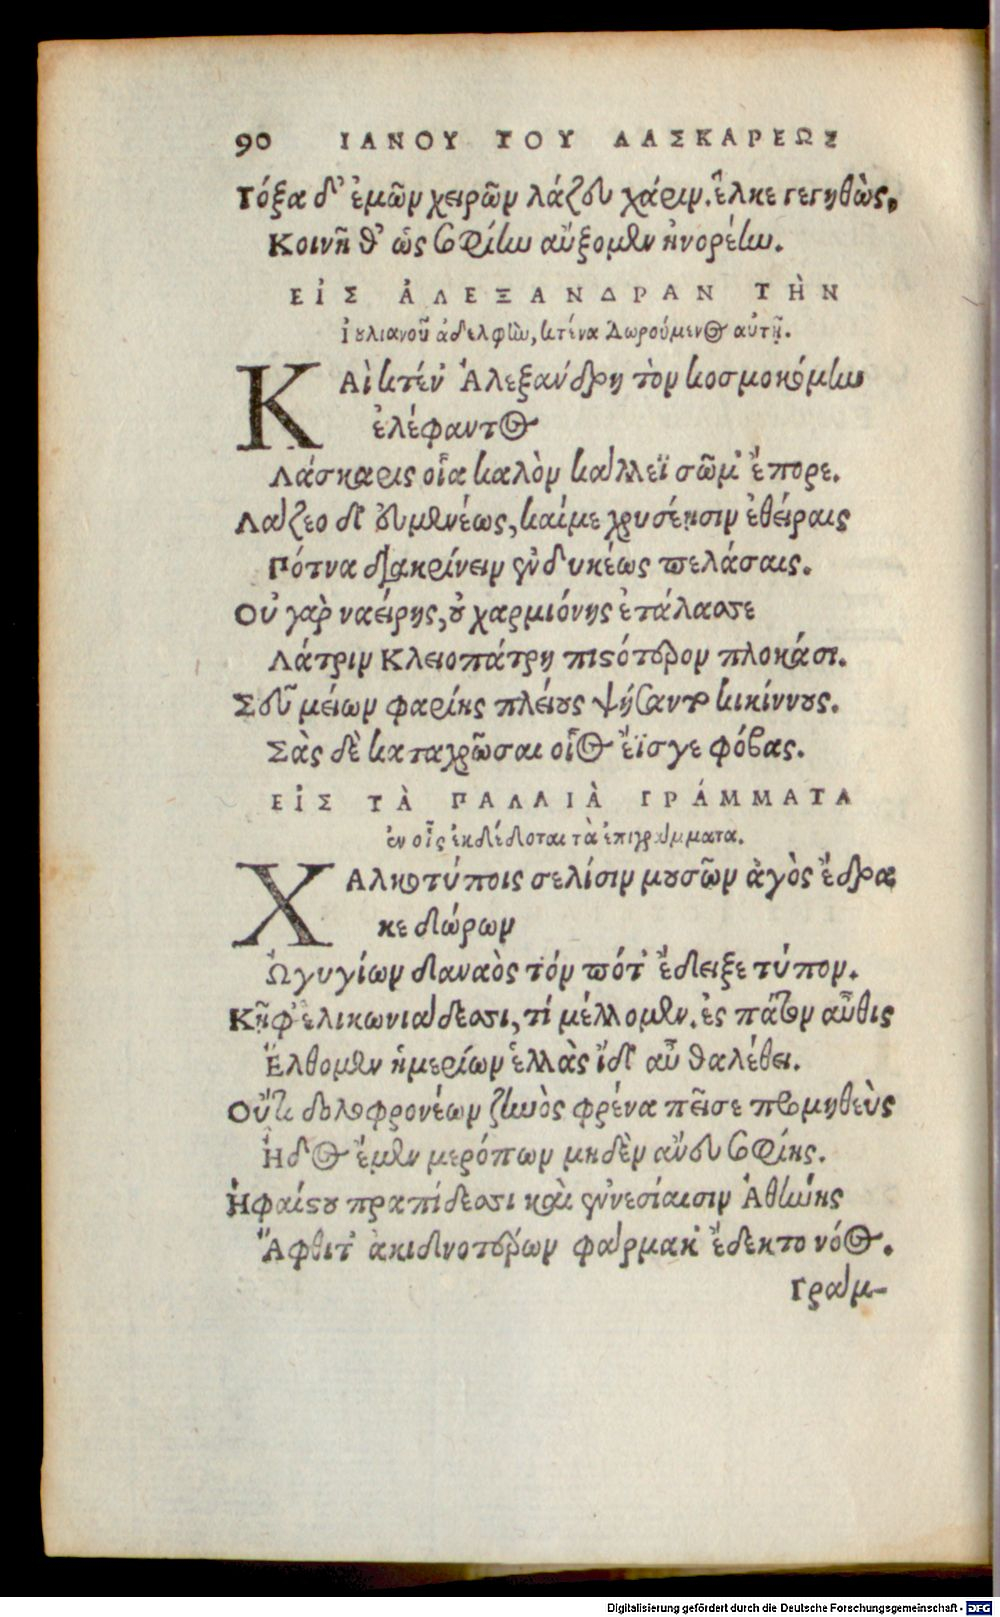 90 ΙΑΝΟΥ ΤΟΥ ΛΑΣΚΑΡΕΩΣ
Τόξα δ' ἐμῶν χειρῶν λάζευ χάριν. ἕλκε γεγηθὼς,
Κοινῇ θ' ὡς σοφίην αὔξομεν ἠνορέην.
ΕἸΣ ἈΛΕΞΑΝΔΡΑΝ ΤῊΝ
Ἰουλιανοῦ ἀδελφὴν, κτένα Δωρούμενος αὐτῇ.
ΚΑὶ κτέν' Ἀλεξάνδρη τὸν κοσμοκόμην
ἐλέφαντος
Λάσκαρις οἷα καλὸν κάλλεϊ σῶμ' ἔπορε.
Λάζεο δ' εὐμενέως, καίμε χρυσέῃσιν ἐθείραις
Πότνα διακρίνειν ἐνδυκέως πελάσαις.
Οὐ γὰρ ναείρης, οὐ χαρμιόνης ἐτάλασσε
Λάτριν Κλειοπάτρη πιστότερον πλοκάσι.
Σεῦ μείων φαρίης πλείους ψήσαντο κικίννους.
Σὰς δὲ καταχρῶσαι οἶος ἔϊσγε φόβας.
ΕἸΣ ΤᾺ ΠΑΛΑΙᾺ ΓΡΆΜΜΑΤΑ
ἐν οἷς ἐκδέδοται τὰ ἐπιγράμματα.
ΧΑλκοτύποις σελίσιν μουσῶν ἀγὸς ἔδρα
κε δώρων
Ὠγυγίων δαναὸς τόν πότ' ἔδειξε τύπον.
Κῇφ' ἑλικωνιάδεσσι, τί μέλλομεν. ἐς πάτον αὖθις
Ἔλθομεν ἡμερίων ἑλλὰς ἴδ' αὖ θαλέθει.
Οὔτι δολοφρονέων ζηνὸς φρένα πεῖσε προμηθεὺς
Ἠδ' ὃς ἔμεν μερόπων μηδὲν ἄνευ σοφίης.
Ἡφαίστου πραπίδεσσι καὶ ἐννεσίαισιν Ἀθήνης
Ἄφθιτ' ἀκιδνοτέρων φάρμακ' ἔδεκτο νόος.
Γράμ-
Digitalisierung gefördert durch die Deutsche Forschungsgemeinschaft - DFG